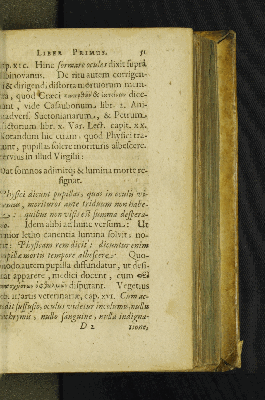 LIBER PRIMUS. 51
cap. XIC. Hinc formare oculos dixit supra
Albinovanus. De ritu autem corrigen-
di & dirigendi distorta mortuorum mem-
bra, quod Græci dice-
bant, vide Casaubonum, libr. 2. Ani-
madvers. Suetonianarum, & Petrum
Victorium libr. X. Var. Lect. capit. XX.
Notandum hic etiam, quod Physici tra-
dunt, pupillas solere morituris albescere.
Servius in illud Virgilii:
Dat somnos adimitq; & lumina morte re-
signat.
Physici dicunt pupillas, quas in oculis vi-
demus, morituros ante triduum non habe-
re: quibus non visis est summa despera-
tio. Idem alibi ad hunc versum: Ut
major letho canentia lumina solvit, no-
tat: Physicam rem dicit: dicuntur enim
pupillæ mortis tempore albescere. Quo-
modo autem pupilla diffundatur, ut desi-
nat apparere, medici docent, cum
disputant. Vegetius
lib. II. artis veterinariæ, cap. XVI. Cum ac-
cedit suffusio, oculus videtur incolumis, nulla
lachrymis, nullo sanguine, nulla indigna-
D 2 tione,